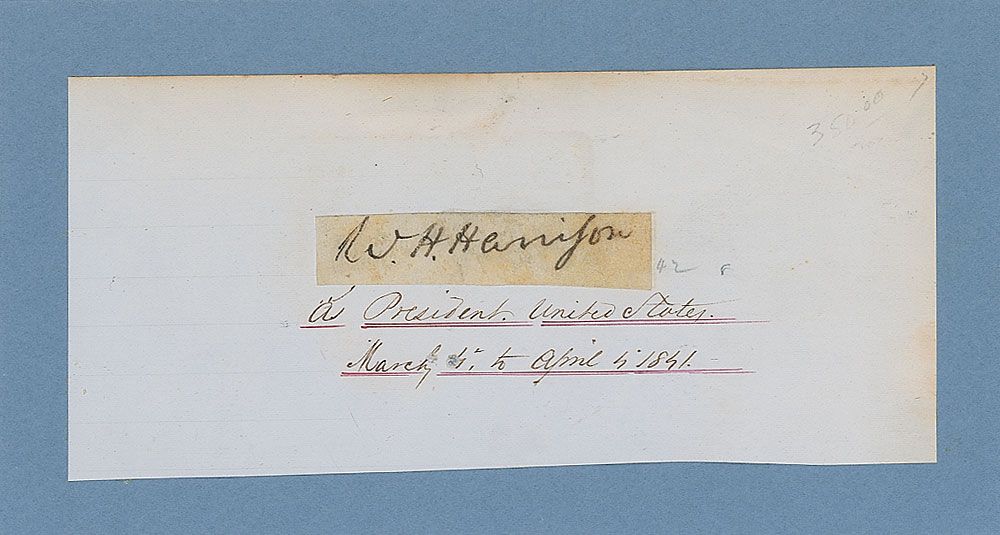 350.00
W. H. Harrison
42 8
a President United States.
March 4. to April 4 1841.